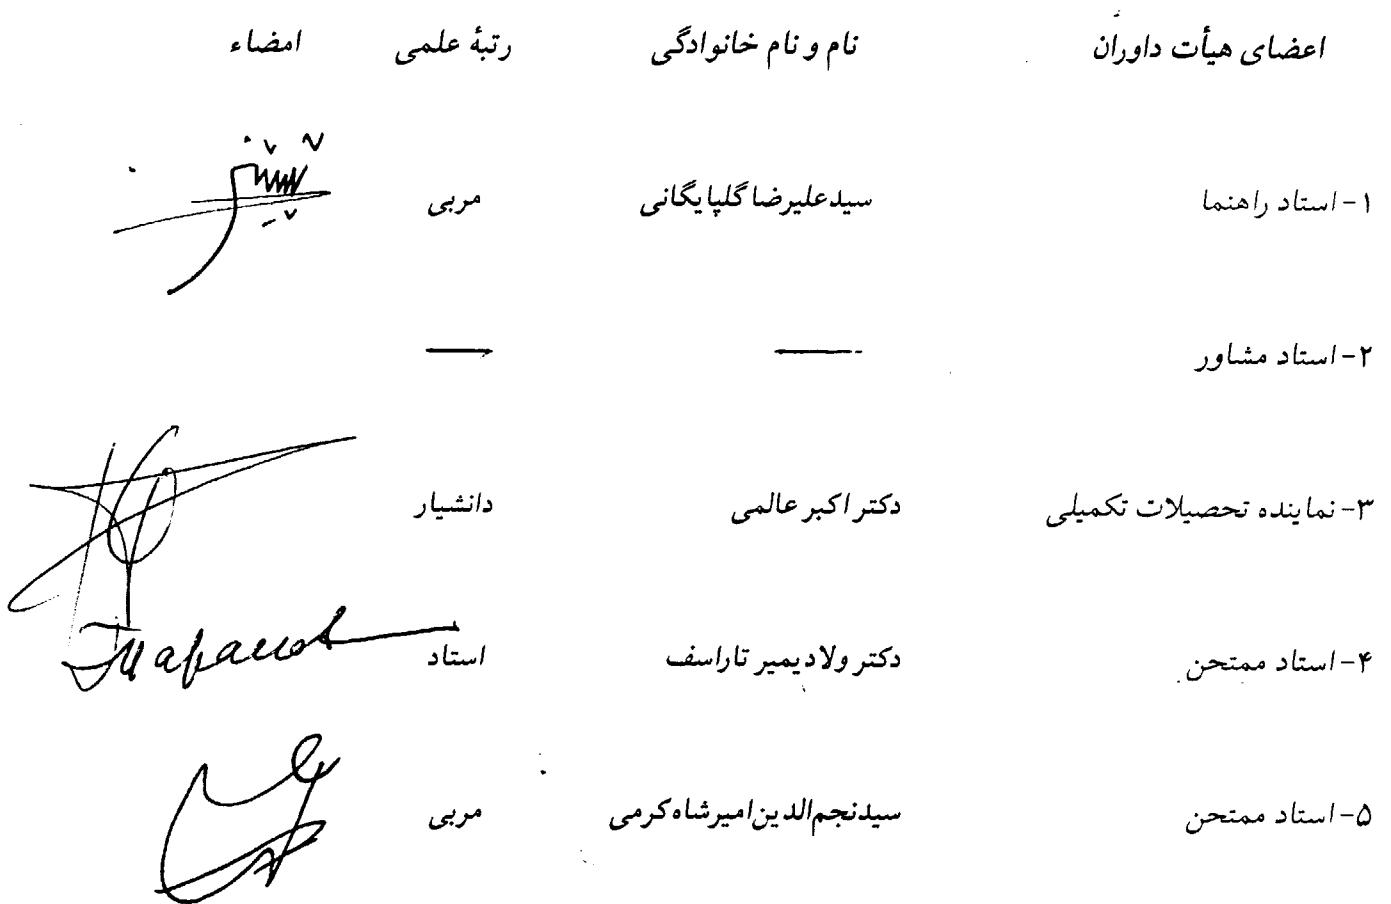 اعضای هیأت داوران نام و نام خانوادگی رتبهٔ علمی امضاء
۱- استاد راهنما سیدعلیرضا گلپایگانی مربی
۲- استاد مشاور — —
۳- نماینده تحصیلات تکمیلی دکتر اکبر عالمی دانشیار
۴- استاد ممتحن دکتر ولادیمیر تاراسف استاد Тарасов
۵- استاد ممتحن سیدنجم‌الدین امیرشاه‌کرمی مربی